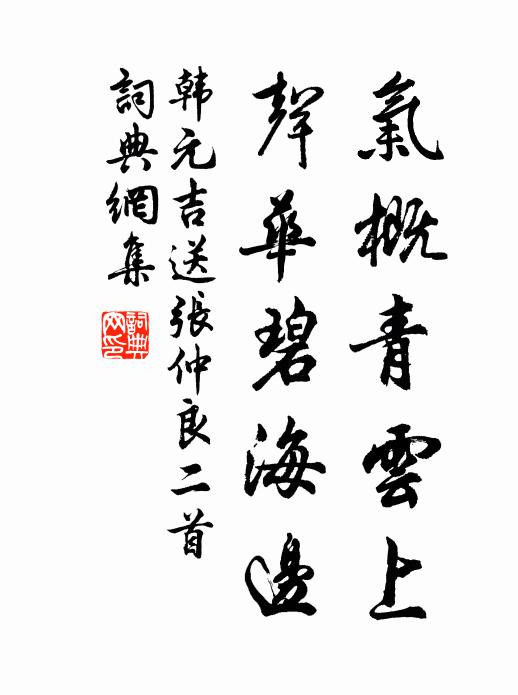 氣概青雲上
聲華碧海邊
韩元吉送張仲良二首
詞典網集
詞典网印